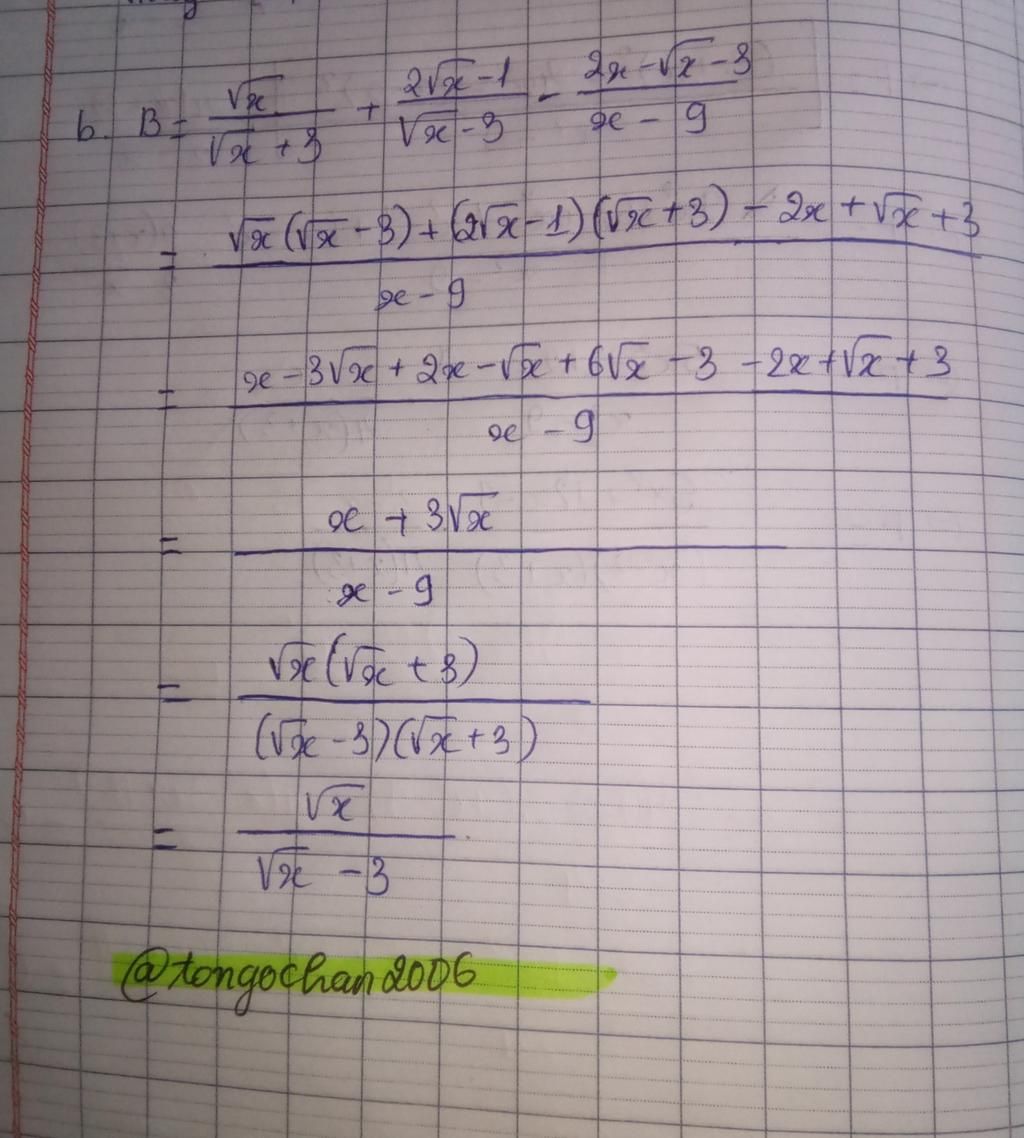 b. B = \frac{\sqrt{x}}{\sqrt{x}+3} + \frac{2\sqrt{x}-1}{\sqrt{x}-3} - \frac{2x-\sqrt{x}-3}{x-9}
= \frac{\sqrt{x}(\sqrt{x}-3)+(2\sqrt{x}-1)(\sqrt{x}+3)-2x+\sqrt{x}+3}{x-9}
= \frac{x-3\sqrt{x}+2x-\sqrt{x}+6\sqrt{x}-3-2x+\sqrt{x}+3}{x-9}
= \frac{x+3\sqrt{x}}{x-9}
= \frac{\sqrt{x}(\sqrt{x}+3)}{(\sqrt{x}-3)(\sqrt{x}+3)}
= \frac{\sqrt{x}}{\sqrt{x}-3}
@tongochan2006